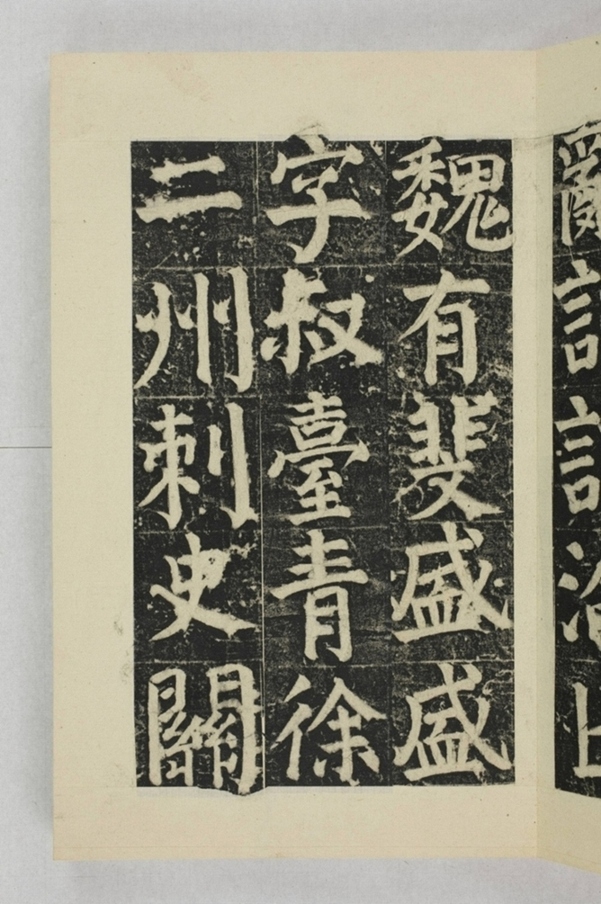 魏有斐盛盛
字叔臺青徐
二州刺史關